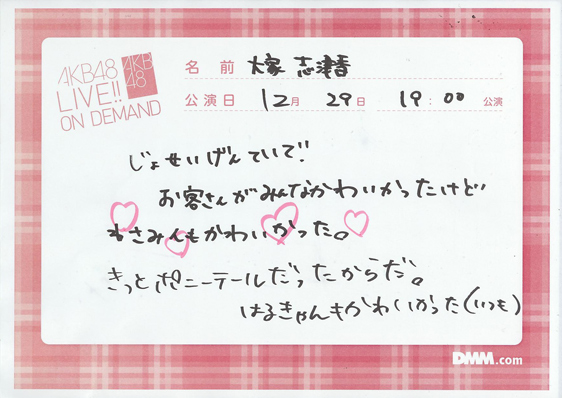 AKB48
LIVE!!
ON DEMAND
AKB
48
名前 大家 志津香
公演日 12月 29日 19:00 公演
じょせいげんていで!
お客さんがみんなかわいかったけど
わさみんもかわいかった。
きっとポニーテールだったからだ。
はるきゃんもかわいかった(いつも)
DMM.com